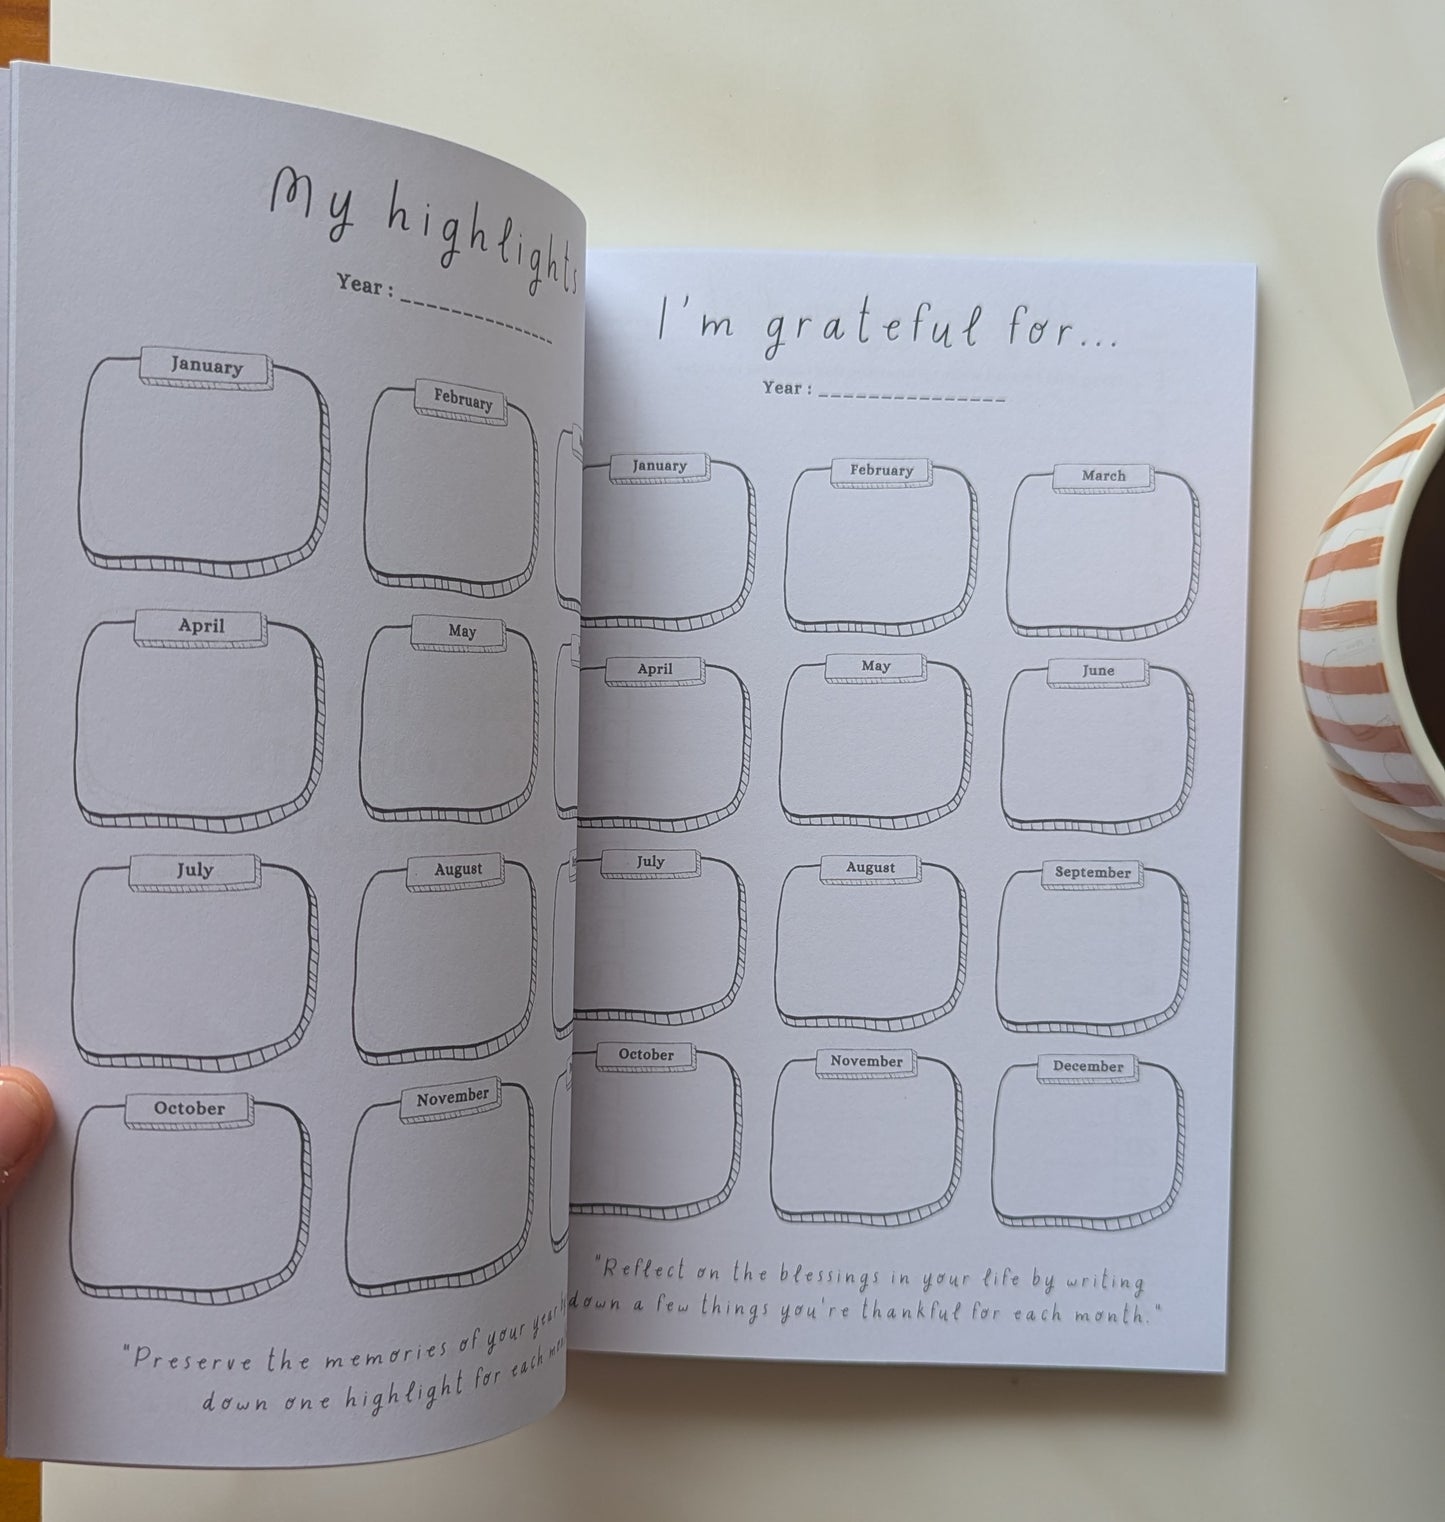 My highlights
Year : _____________
January
February
April
May
July
August
October
November
"Preserve the memories of your year
down one highlight for each
I'm grateful for...
Year : _______________
January
February
March
April
May
June
July
August
September
October
November
December
"Reflect on the blessings in your life by writing
down a few things you're thankful for each month."